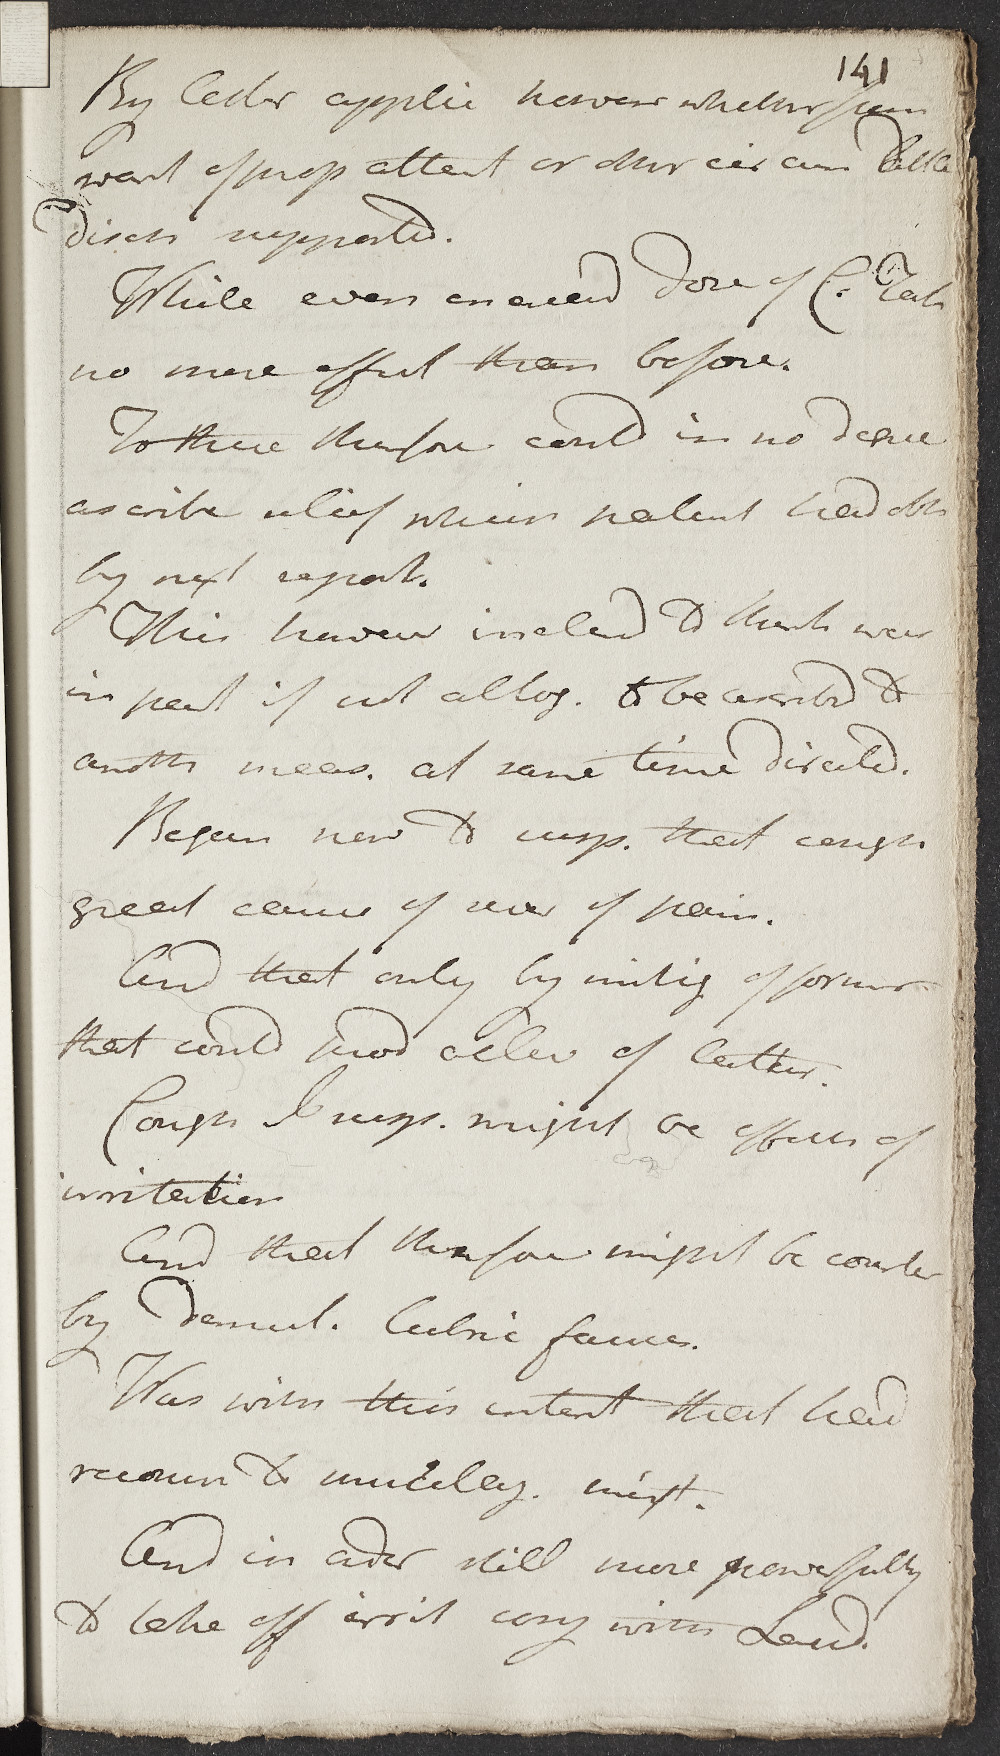 141
By latter applic however whether from
want of prop attent or other circum little
disch supported.
While even encreased dose of C. Tab
no more effect than before.
To these therefore could in no degree
ascribe relief which patient had obt
by next report.
This however inclined to think was
in part if not altog. to be ascribed to
another meas. at same time directed.
Began now to susp. that cough
great cause of sever of pain.
And that only by mitig of former
that could prod allev of latter.
Cough I susp. might be effect of
irritation
And that therefore might be counter
by demul. lubric fauces.
Was with this intent that had
recourse to mucilag. mixt.
And in order still more powerfully
to take off irrit conj with Laud.